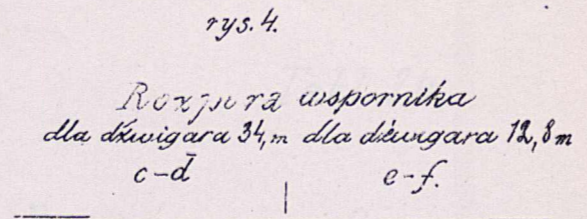 rys. 4.
Rozpora wspornika
dla dźwigara 34,m dla dźwigara 12,8m
c-d e-f.